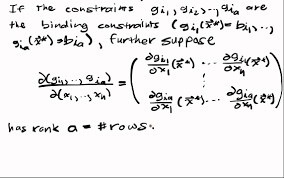 If the constraints g_{i1}, g_{i2}, ..., g_{ia} are
the binding constraints (g_{i1}(x⃗*)=b_{i1}, ...,
g_{ia}(x⃗*)=b_{ia}), further suppose
∂(g_{i1}, ..., g_{ia})/∂(x_1, ..., x_n) = ( ∂g_{i1}/∂x_1 (x⃗*) ... ∂g_{i1}/∂x_n (x⃗*)
⋮ ⋮
∂g_{ia}/∂x_1 (x⃗*) ... ∂g_{ia}/∂x_n (x⃗*) )
has rank a = # rows.